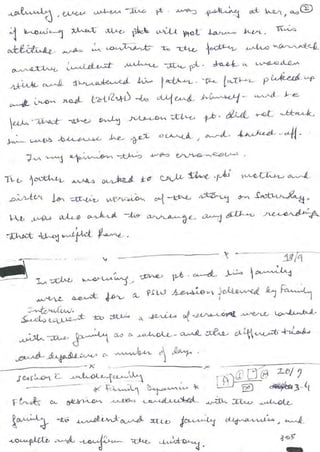 calmly, even when the pt. was poking at her, as
if knowing that the pt. will not harm her. This
attitude was in contrast to the father who narrated
another incident where the pt. took a wooden
stick and threatened his father. The father picked up
and iron rod to defend himself and he
feels that the only reason the pt. did not attack
him was because he got scared, and backed-off.
In my opinion this was erroneous.
The father was asked to call the pts' mother and
sister for their version of the story on Saturday.
He was also asked to arrange any other recordings
that they might have.
18/9
In the morning, the pt. and his family
were sent for a PSW session followed by Family
interview.
Subsequent to this a series of sessions were conducted
with the family as a whole and the different triads
and dyads over a number of days.
Session whole family
20/9
* Family Dynamics *
3.4
First a session was conducted with the whole
family to understand the family dynamics, and
complete and confirm the history.